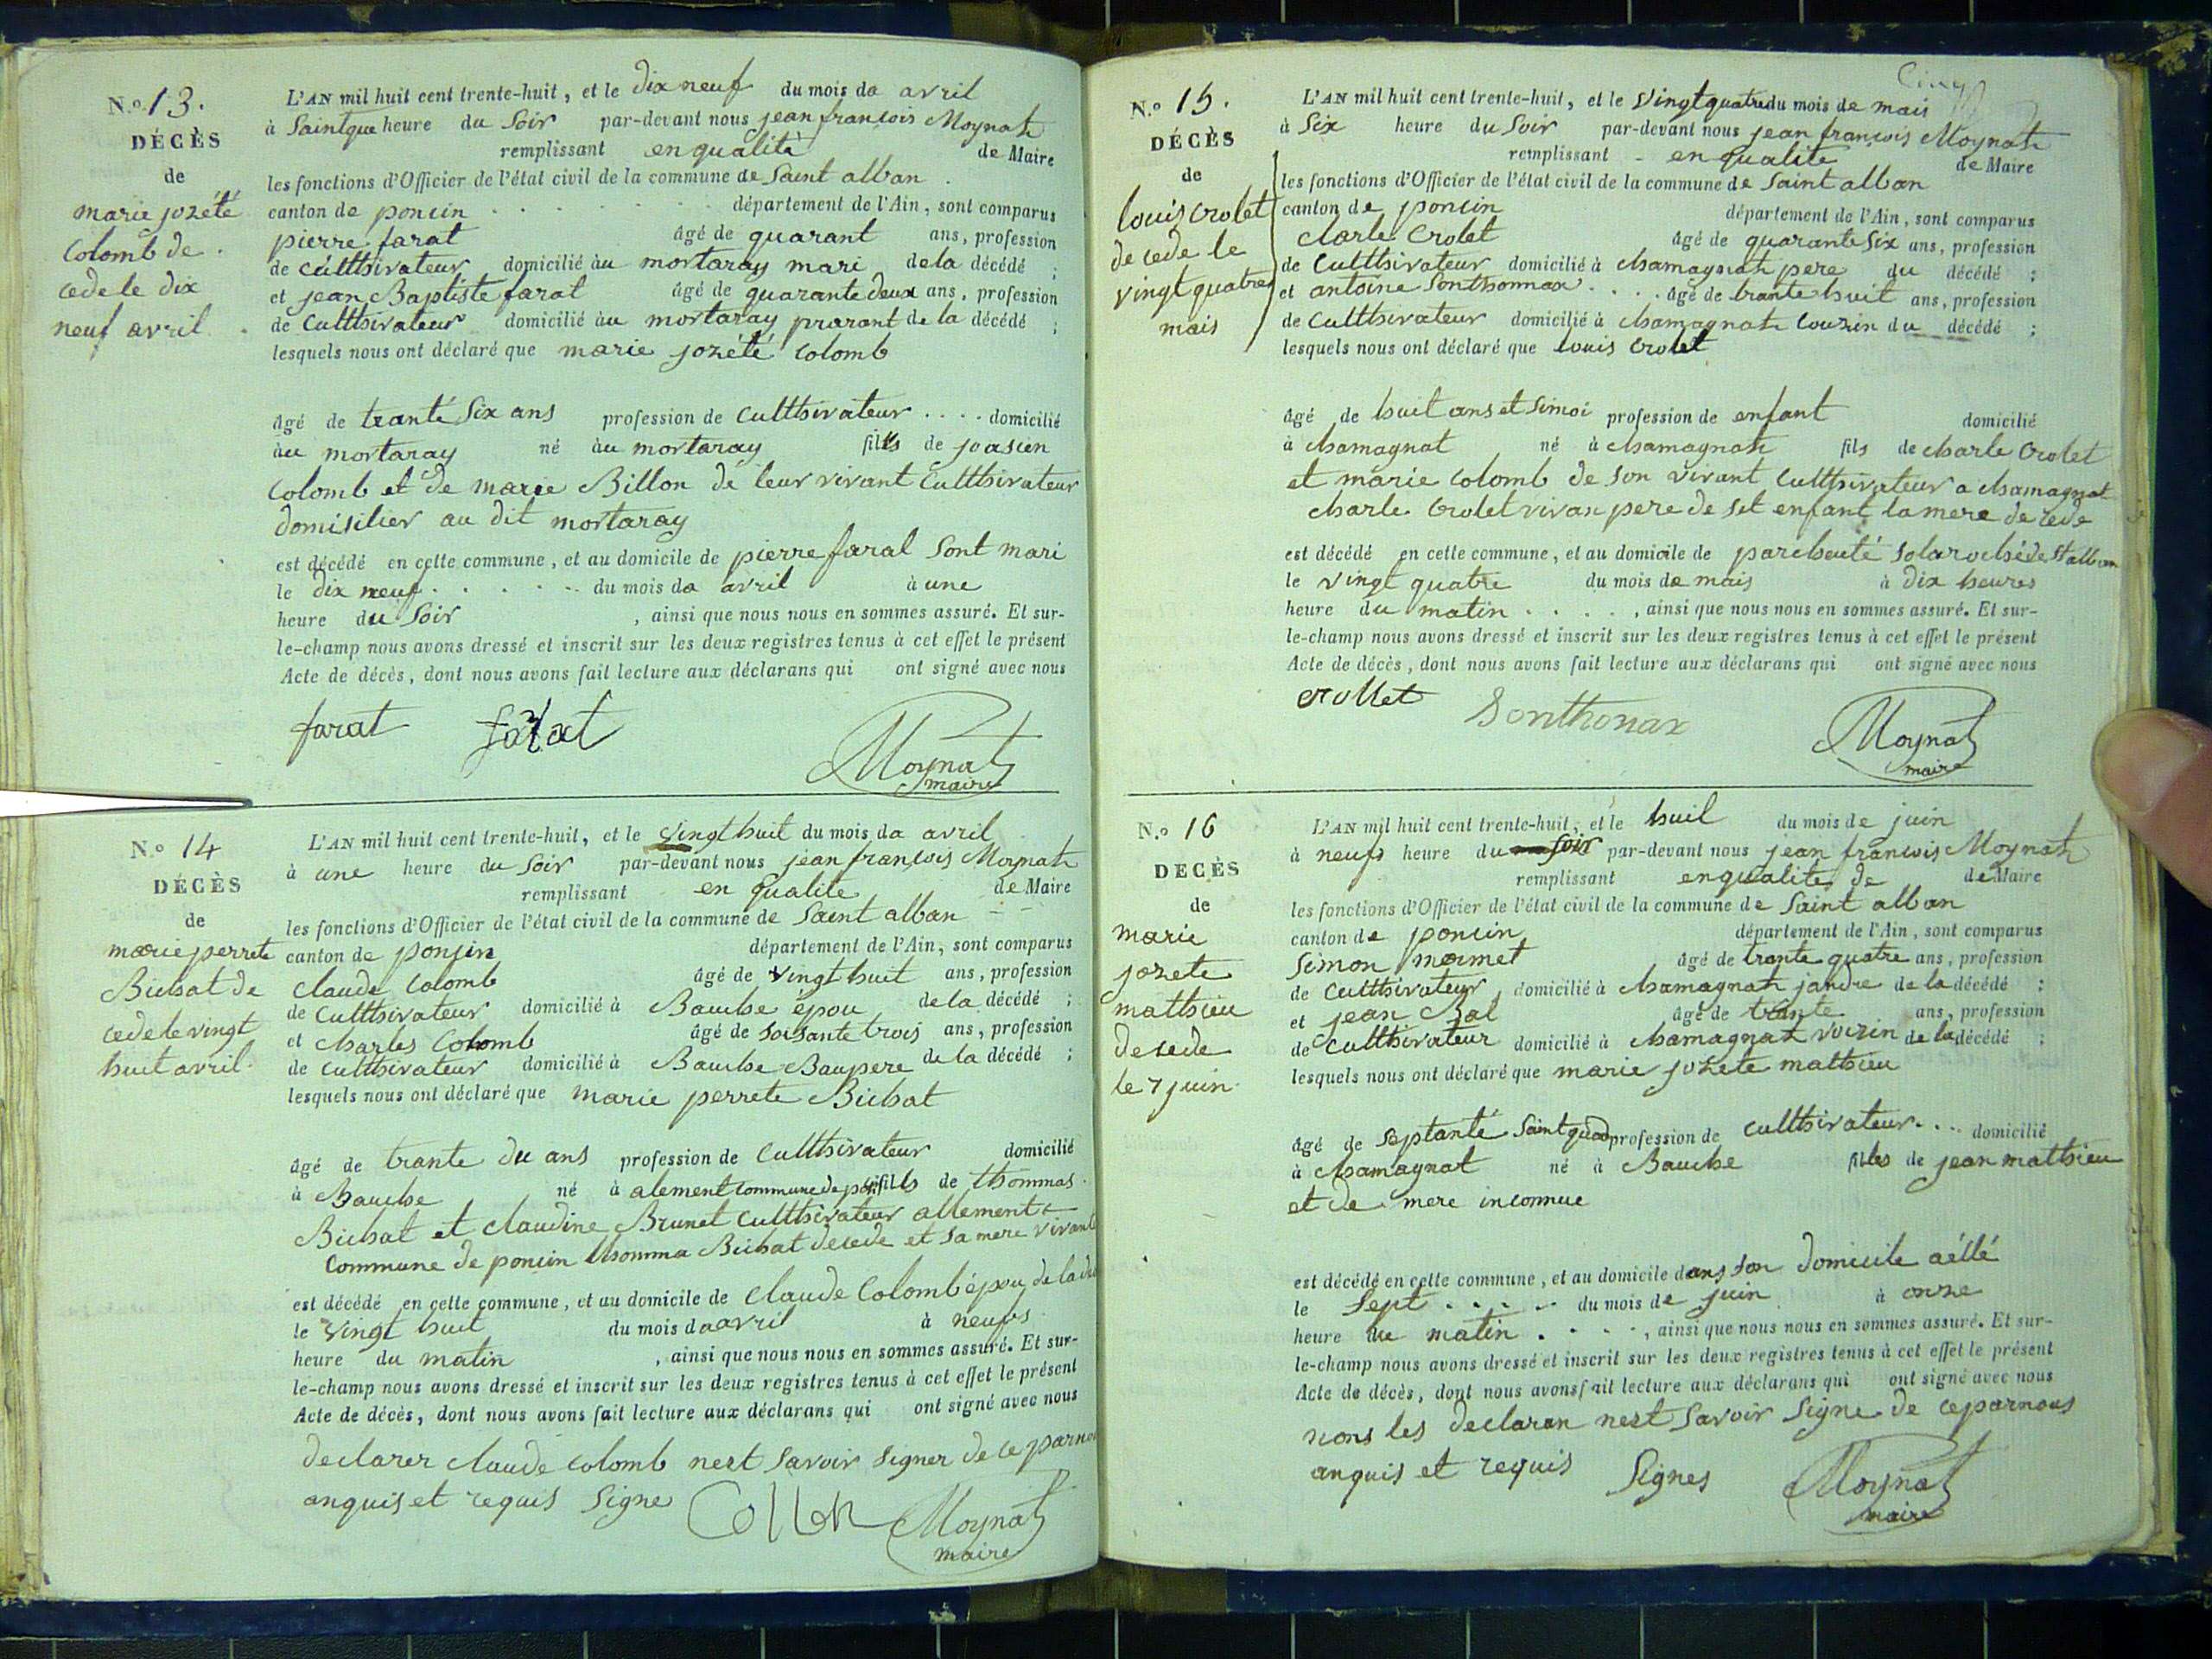 N.o 13.
DÉCÈS
de
marie jozété
Colomb de
cede le dix
neuf avril
L'AN mil huit cent trente-huit, et le dix neuf du mois da avril
à Saintque heure du Soir par-devant nous jean francois Moynat
remplissant en qualité de Maire
les fonctions d'Officier de l'état civil de la commune de Saint alban
canton de poncin département de l'Ain, sont comparus
pierre farat âgé de quarant ans, profession
de culthivateur domicilié àu mortaray mari de la décédé ;
et jean Baptiste farat âgé de quarante deux ans, profession
de Culthivateur domicilié àu mortaray prarant de la décédé ;
lesquels nous ont déclaré que marie jozété Colomb
âgé de tranté Six ans profession de Culthivateur .... domicilié
àu mortaray né àu mortaray fills de joasien
Colomb et de marie Billon de leur vivant Culthivateur
domisilier au dit mortaray
est décédé en cette commune, et au domicile de pierre farat Sont mari
le dix neuf du mois da avril à une
heure du Soir , ainsi que nous nous en sommes assuré. Et sur-
le-champ nous avons dressé et inscrit sur les deux registres tenus à cet effet le présent
Acte de décès, dont nous avons fait lecture aux déclarans qui ont signé avec nous
farat farat Moynat
maire
N.o 14
DÉCÈS
de
marie perrete
Bichat de
cede le vingt
huit avril.
L'AN mil huit cent trente-huit, et le vingt huit du mois da avril
à une heure du Soir par-devant nous jean francois Moynat
remplissant en qualite de Maire
les fonctions d'Officier de l'état civil de la commune de Saint alban
canton de ponsin département de l'Ain, sont comparus
Claude Colomb âgé de vingt huit ans, profession
de Culthivateur domicilié à Bauche épou de la décédé ;
et Charles Colomb âgé de soisante trois ans, profession
de Culthivateur domicilié à Bauche Baupere de la décédé ;
lesquels nous ont déclaré que marie perrete Bichat
âgé de trante du ans profession de Culthivateur domicilié
à Bauche né à alement commune de fills de thommas
Bichat et Claudine Brunet Culthivateur allement
Commune de poncin thomma Bichat decede et sa mere vivant
est décédé en cette commune, et au domicile de Claude Colomb épou de la
le vingt huit du mois da avril à neufs
heure du matin , ainsi que nous nous en sommes assuré. Et sur-
le-champ nous avons dressé et inscrit sur les deux registres tenus à cet effet le présent
Acte de décès, dont nous avons fait lecture aux déclarans qui ont signé avec nous
declarer claude colomb nest savoir signer de ce
anquis et requis Signe Moynat
maire
Cinq
N.o 15.
DÉCÈS
de
louis Crolet
de cede le
vingt quatre
mais
L'AN mil huit cent trente-huit, et le vingt quatre du mois de mais
à Six heure du Soir par-devant nous jean francois Moynat
remplissant en qualite de Maire
les fonctions d'Officier de l'état civil de la commune de Saint alban
canton de poncin département de l'Ain, sont comparus
Charle Crolet âgé de quarante Six ans, profession
de Culthivateur domicilié à chamagnat pere du décédé ;
et antoine Sonthonnax .... âgé de trante huit ans, profession
de Culthivateur domicilié à chamagnat Couzin du décédé ;
lesquels nous ont déclaré que louis Crolet
âgé de huit ans et simoi profession de enfant domicilié
à chamagnat né à chamagnat fils de charle Crolet
et marie colomb de son vivant Culthivateur a chamagnat
charle Crolet vivan pere de set enfant la mere de cede
est décédé en cette commune, et au domicile de
le vingt quatre du mois de mais à dix heures
heure du matin .... , ainsi que nous nous en sommes assuré. Et sur-
le-champ nous avons dressé et inscrit sur les deux registres tenus à cet effet le présent
Acte de décès, dont nous avons fait lecture aux déclarans qui ont signé avec nous
crollet Sonthonax Moynat
maire
N.o 16
DECÈS
de
marie
jozete
mathieu
decede
le 7 juin
L'AN mil huit cent trente-huit, et le huit du mois de juin
à neufs heure du soir par-devant nous jean francois Moynat
remplissant en qualite de de Maire
les fonctions d'Officier de l'état civil de la commune de Saint alban
canton de poncin département de l'Ain, sont comparus
Simon mermet âgé de trante quatre ans, profession
de Culthivateur, domicilié à chamagnat jandre de la décédé ;
et jean Bal âgé de trante ans, profession
de culthivateur domicilié à chamagnat voizin de la décédé ;
lesquels nous ont déclaré que marie jozete mathieu
âgé de septanté profession de Culthivateur .... domicilié
à chamagnat né à Bauche filles de jean mathieu
et de mere inconnue
est décédé en cette commune, et au domicile dans son domicile aéllé
le Sept .... du mois de juin à onze
heure du matin .... , ainsi que nous nous en sommes assuré. Et sur-
le-champ nous avons dressé et inscrit sur les deux registres tenus à cet effet le présent
Acte de décès, dont nous avons fait lecture aux déclarans qui ont signé avec nous
nons les declaran nest Savoir Signe de ceparnous
anquis et requis Signes Moynat
maire